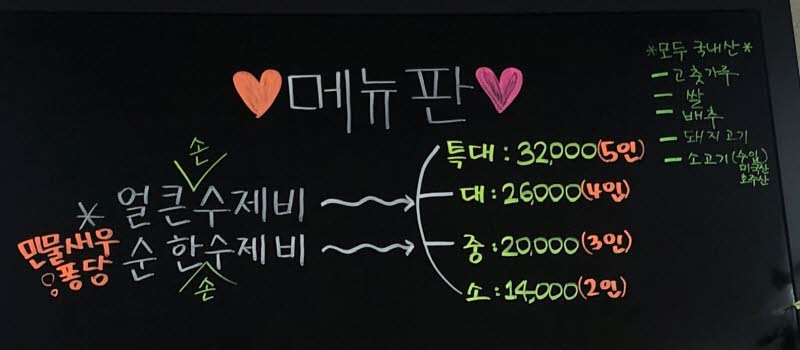 메뉴판
*모두 국내산*
- 고춧가루
- 쌀
- 배추
- 돼지고기
- 소고기(수입)
미국산
호주산
* 얼큰손수제비
순한손수제비
민물새우
퐁당
특대 : 32,000(5인)
대 : 26,000(4인)
중 : 20,000(3인)
소 : 14,000(2인)